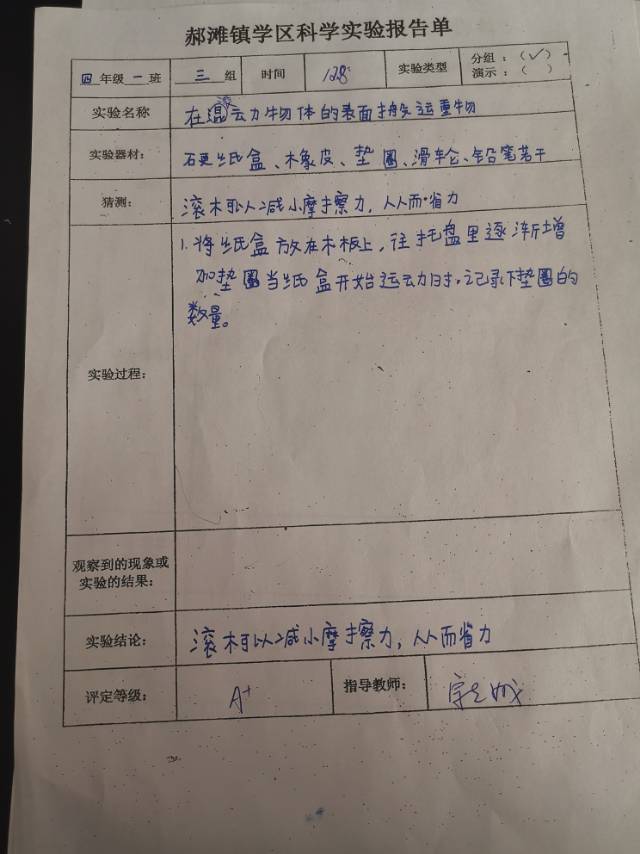 郝滩镇学区科学实验报告单
四 年级 一 班 三 组 时间 128 实验类型 分组：（✓）
演示：（ ）
实验名称 在滚动物体的表面搬运重物
实验器材： 硬纸盒、木橡皮、垫圈、滑轮、铅笔若干
猜测： 滚木可以减小摩擦力，从而省力
实验过程： 1. 将纸盒放在木板上，往托盘里逐渐增
加垫圈当纸盒开始运动时，记录下垫圈的
数量。
观察到的现象或
实验的结果：
实验结论： 滚木可以减小摩擦力，从而省力
评定等级： A+ 指导教师：